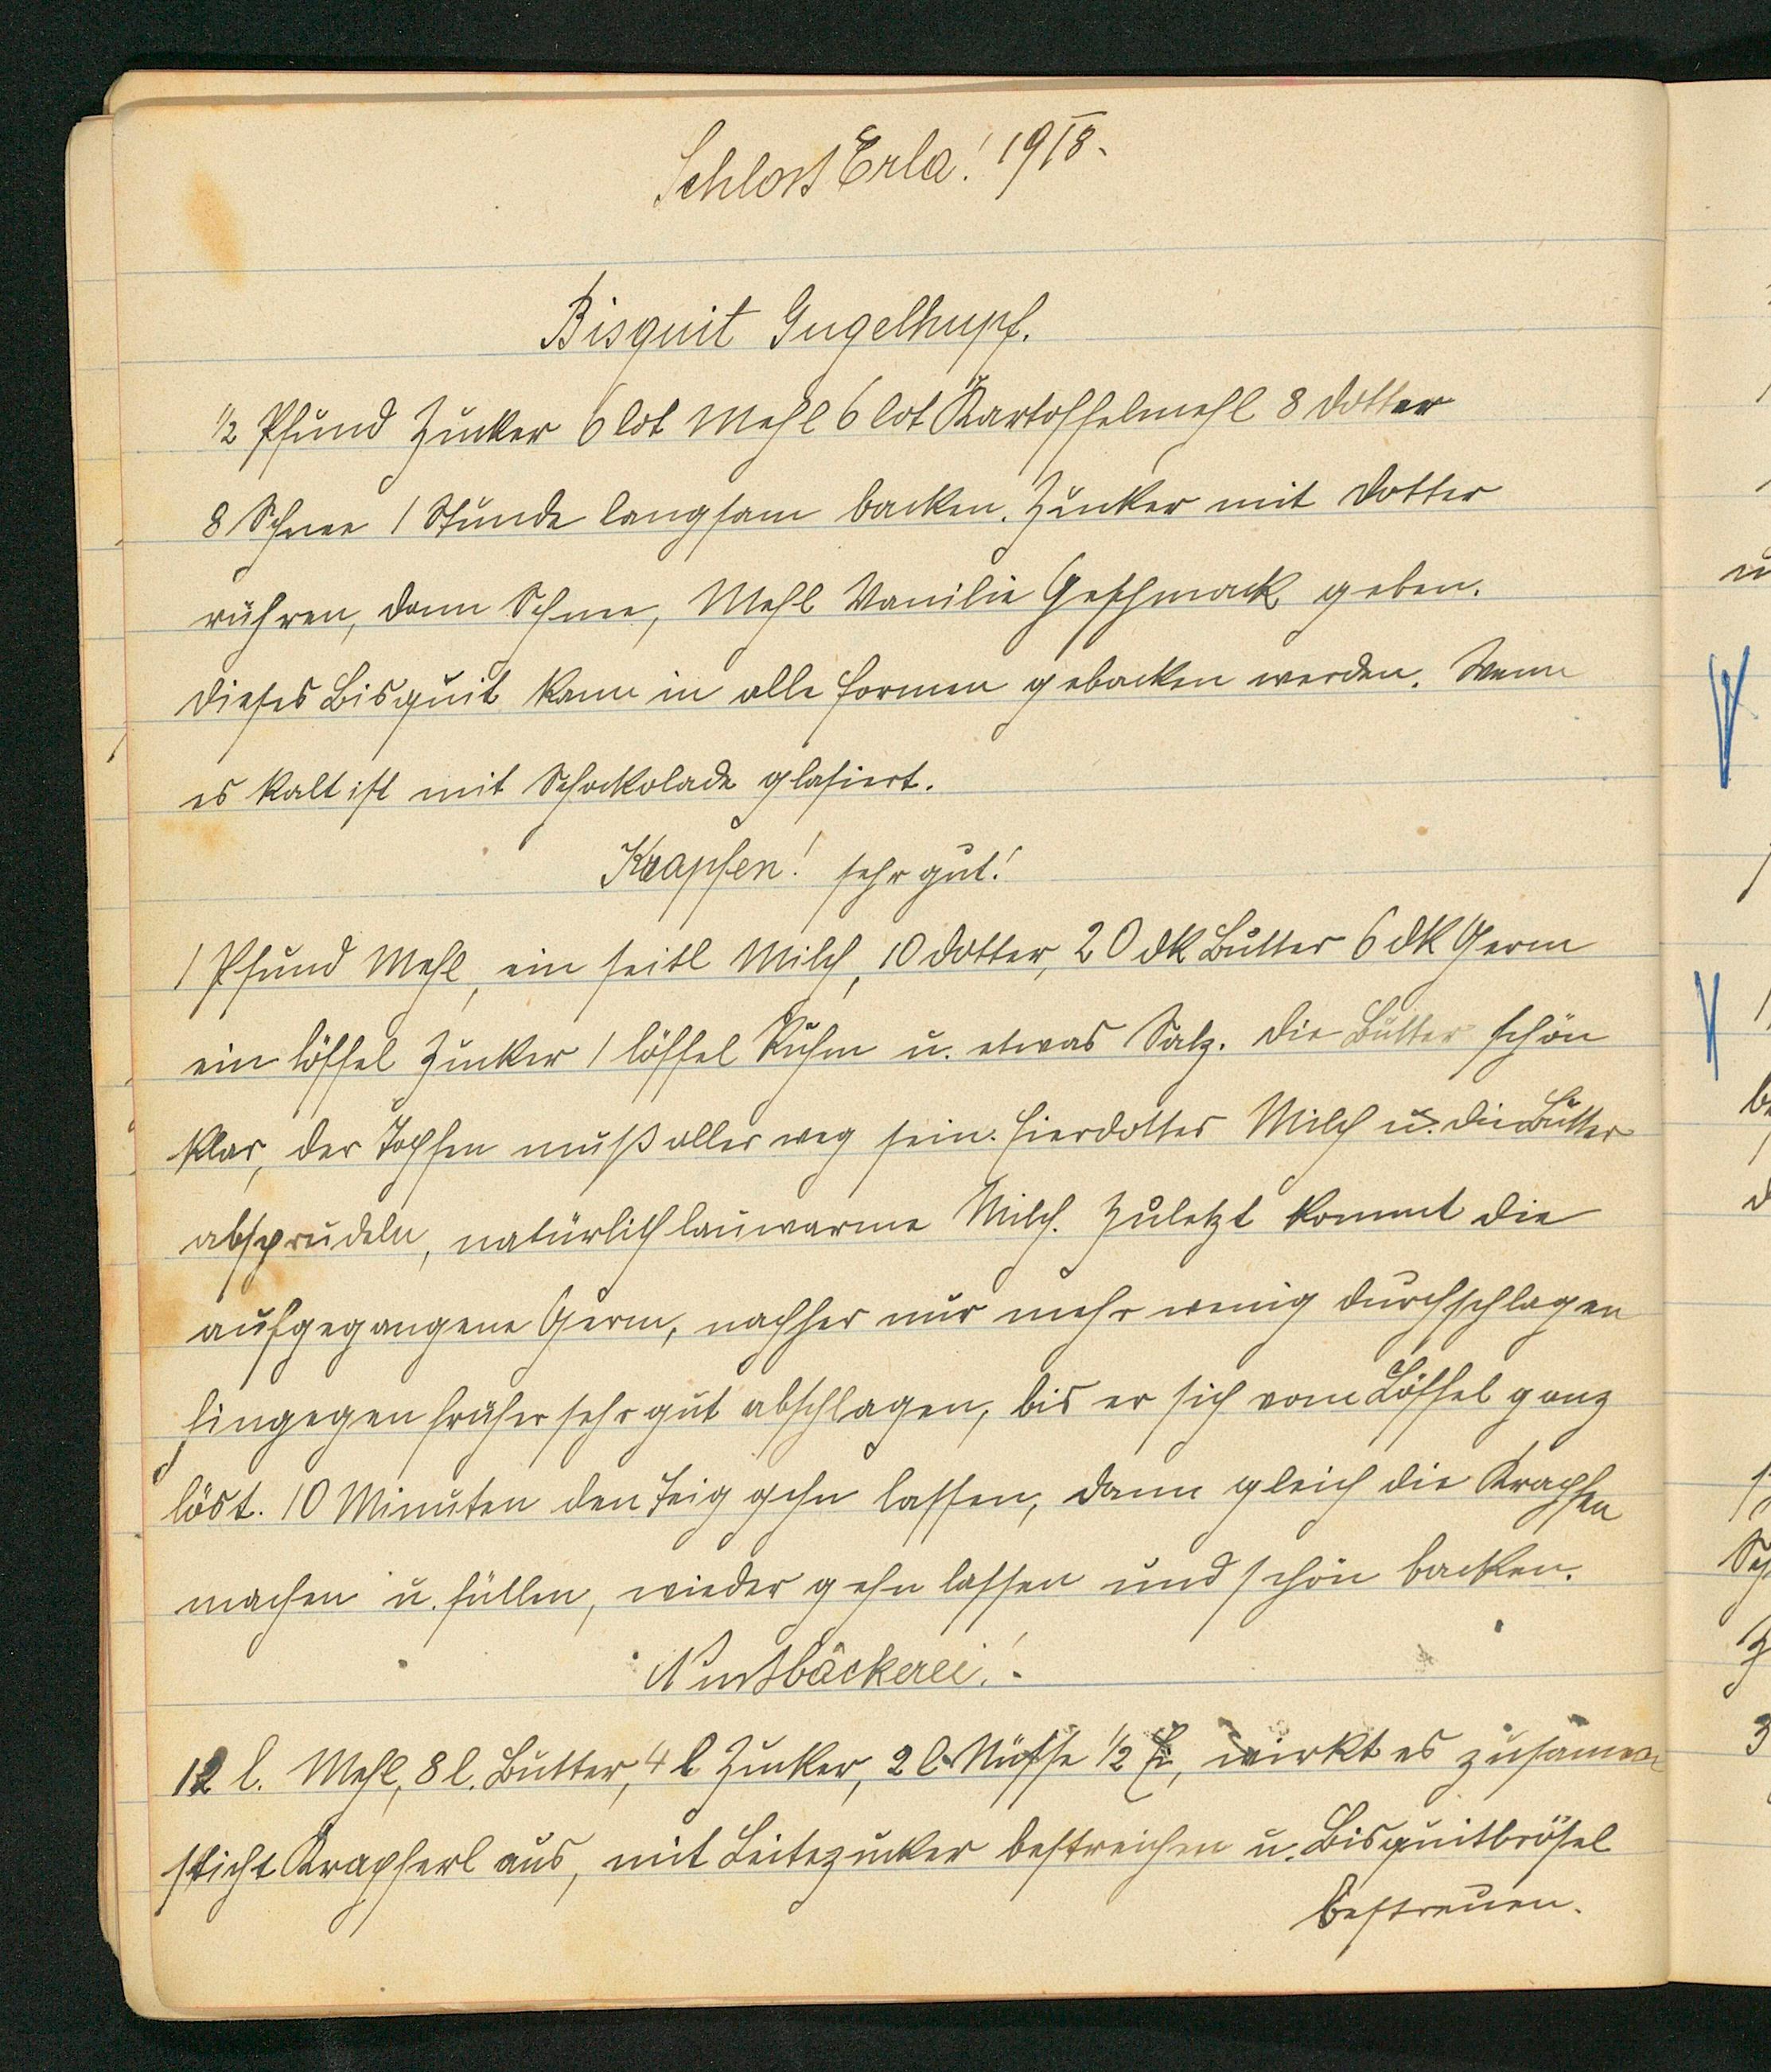 Schloss Erla! 1918.
Bisquit Gugelhupf.
1/2 Pfund Zucker 6 lot Mehl 6 lot Kartoffelmehl 8 Dotter
8 Schnee 1 Stunde langsam backen. Zucker mit Dotter
rühren, dann Schnee, Mehl Vanilie Geschmack geben.
Dieses Bisquit kann in alle Formen gebacken werden. Wenn
es kalt ist mit Schockolade glasiert.
Krapfen! sehr gut!
1 Pfund Mehl, ein seitl Milch, 10 Dotter, 20 dk Butter 6 dk Germ
ein löffel Zucker 1 löffel Ruhm u. etwas Salz. Die Butter schön
klar, der Topfen muß aller weg sein. Eierdotter Milch u. die Butter
absprudeln, natürlich lauwarme Milch. Zuletzt kommt die
aufgegangene Germ, nachher nur mehr wenig durchschlagen
hingegen früher sehr gut abschlagen, bis er sich vom Löffel ganz
löst. 10 Minuten den Teig gehn lassen, dann gleich die Krapfen
machen u. füllen, wieder gehn lassen und schön backen.
Nussbäckerei!
12 l. Mehl, 8 l. Butter, 4 l Zucker, 2 l. Nüsse 1/2 Ei, wirkt es zusammen
sticht Krapferl aus, mit Leitezucker bestreichen u. Bisquitbrösel
bestreuen.